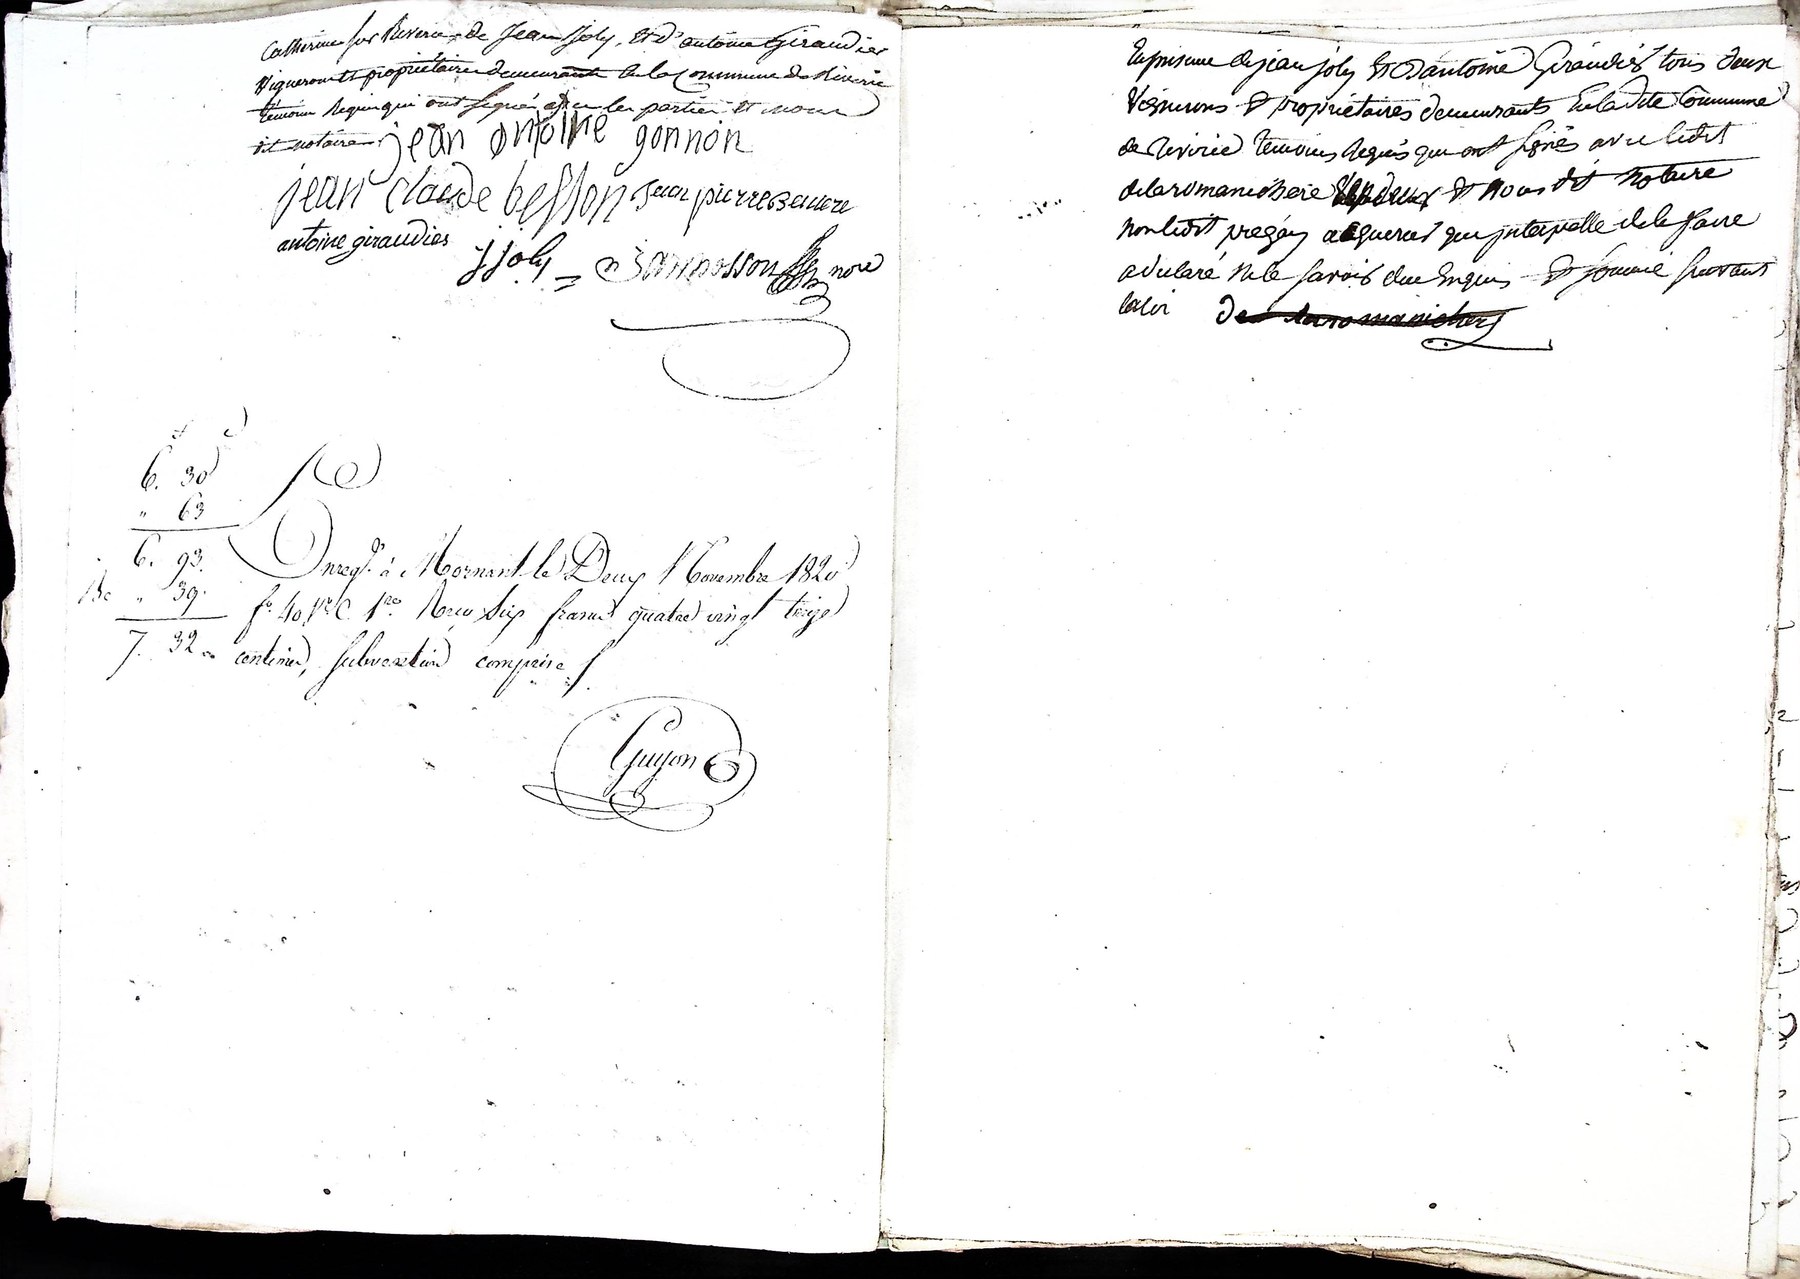 Catherine sur Riverie, de Jean Joly, et d'antoine Giraudier
Vignerons et propriétaires demeurants en la Commune de Riverie
témoins requis qui ont signés avec les parties et nous
dit notaire.
jean antoine gonnon
jean claude besson jean pierre
antoine giraudier
J Joly
nore
6. 30
" 63
6. 93.
" 39.
7. 32
Enregé. à Mornant le Deux Novembre 1820
fo. 40 Ro C. 1re Reçu six francs quatre vingt treize
centimes, subvention comprise
Guyon
En présence de jean joly et d'antoine Giraudier tous deux
Vignerons et propriétaires demeurants en la dite Commune
de riverie temoins requis qui ont signés avec ledit
delaromanichere et nous dit notaire
non ledit acquereur que interpellé de le faire
a declaré ne le savoir due enquis et sommé suivant
la loi